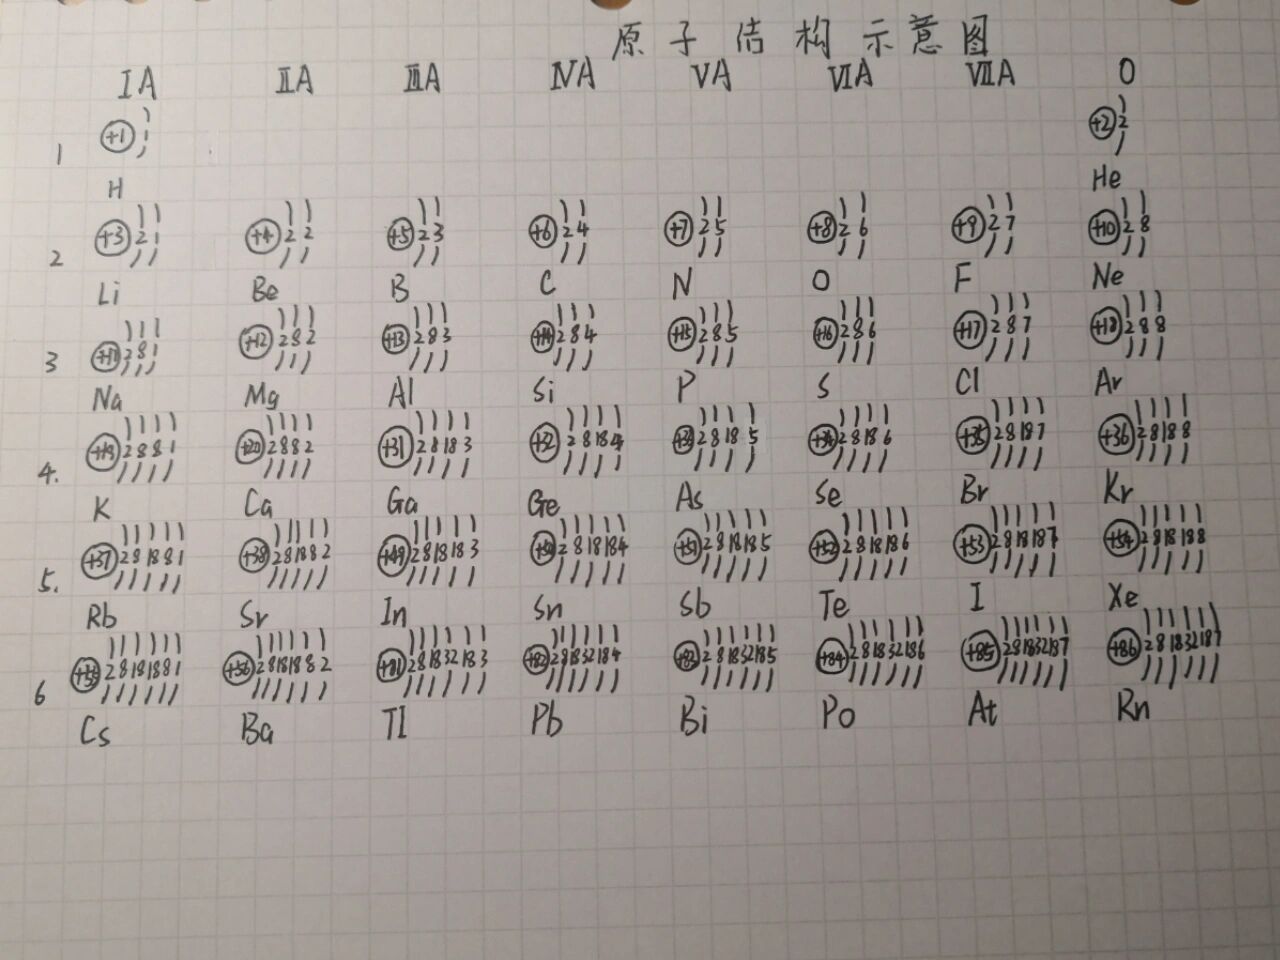 原子结构示意图
ⅠA ⅡA ⅢA ⅣA ⅤA ⅥA ⅦA 0
1 +1 1 +2 2
H He
2 +3 2 1 +4 2 2 +5 2 3 +6 2 4 +7 2 5 +8 2 6 +9 2 7 +10 2 8
Li Be B C N O F Ne
3 +11 2 8 1 +12 2 8 2 +13 2 8 3 +14 2 8 4 +15 2 8 5 +16 2 8 6 +17 2 8 7 +18 2 8 8
Na Mg Al Si P S Cl Ar
4. +19 2 8 8 1 +20 2 8 8 2 +31 2 8 18 3 +32 2 8 18 4 +33 2 8 18 5 +34 2 8 18 6 +35 2 8 18 7 +36 2 8 18 8
K Ca Ga Ge As Se Br Kr
5. +37 2 8 18 8 1 +38 2 8 18 8 2 +49 2 8 18 18 3 +50 2 8 18 18 4 +51 2 8 18 18 5 +52 2 8 18 18 6 +53 2 8 18 18 7 +54 2 8 18 18 8
Rb Sr In Sn Sb Te I Xe
6 +55 2 8 18 18 8 1 +56 2 8 18 18 8 2 +81 2 8 18 32 18 3 +82 2 8 18 32 18 4 +83 2 8 18 32 18 5 +84 2 8 18 32 18 6 +85 2 8 18 32 18 7 +86 2 8 18 32 18 7
Cs Ba Tl Pb Bi Po At Rn